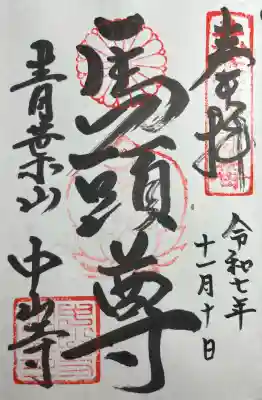 奉拝
令和七年
十一月十日
馬頭尊
青葉山
中山寺